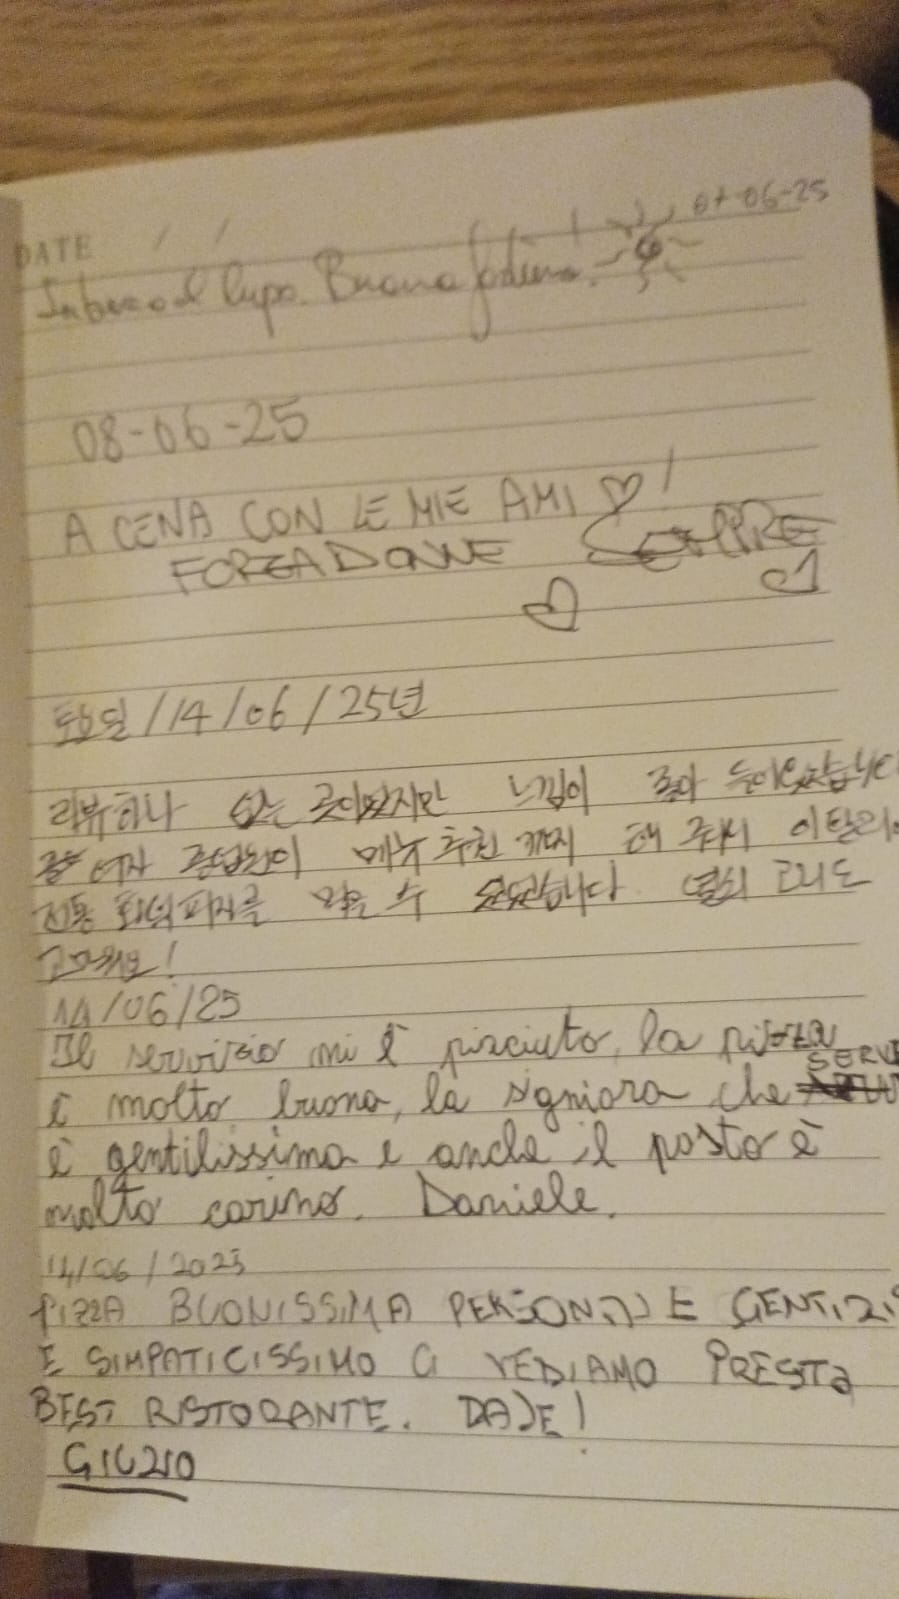 DATE / /
07-06-25
In bocca al lupo. Buona fortuna!
08-06-25
A CENA CON LE MIE AMI !
FORZA DONNE SEMPRE
토요일/14/06/25년
리뷰 하나 없는 곳이었지만 느낌이 좋아 들어왔습니다
여자 종업원이 메뉴 추천까지 해 주셔서 이탈리아
전통 화덕피자를 먹을 수 있었습니다.
고마워요!
14/06/25
Il servizio mi è piaciuto, la pizza
è molto buona, la signiora che SERVE
è gentilissima e anche il posto è
molto carino. Daniele.
14/06/2025
PIZZA BUONISSIMA PERSONALE GENTILE
E SIMPATICISSIMO CI VEDIAMO PRESTO
BEST RISTORANTE. DAJE!